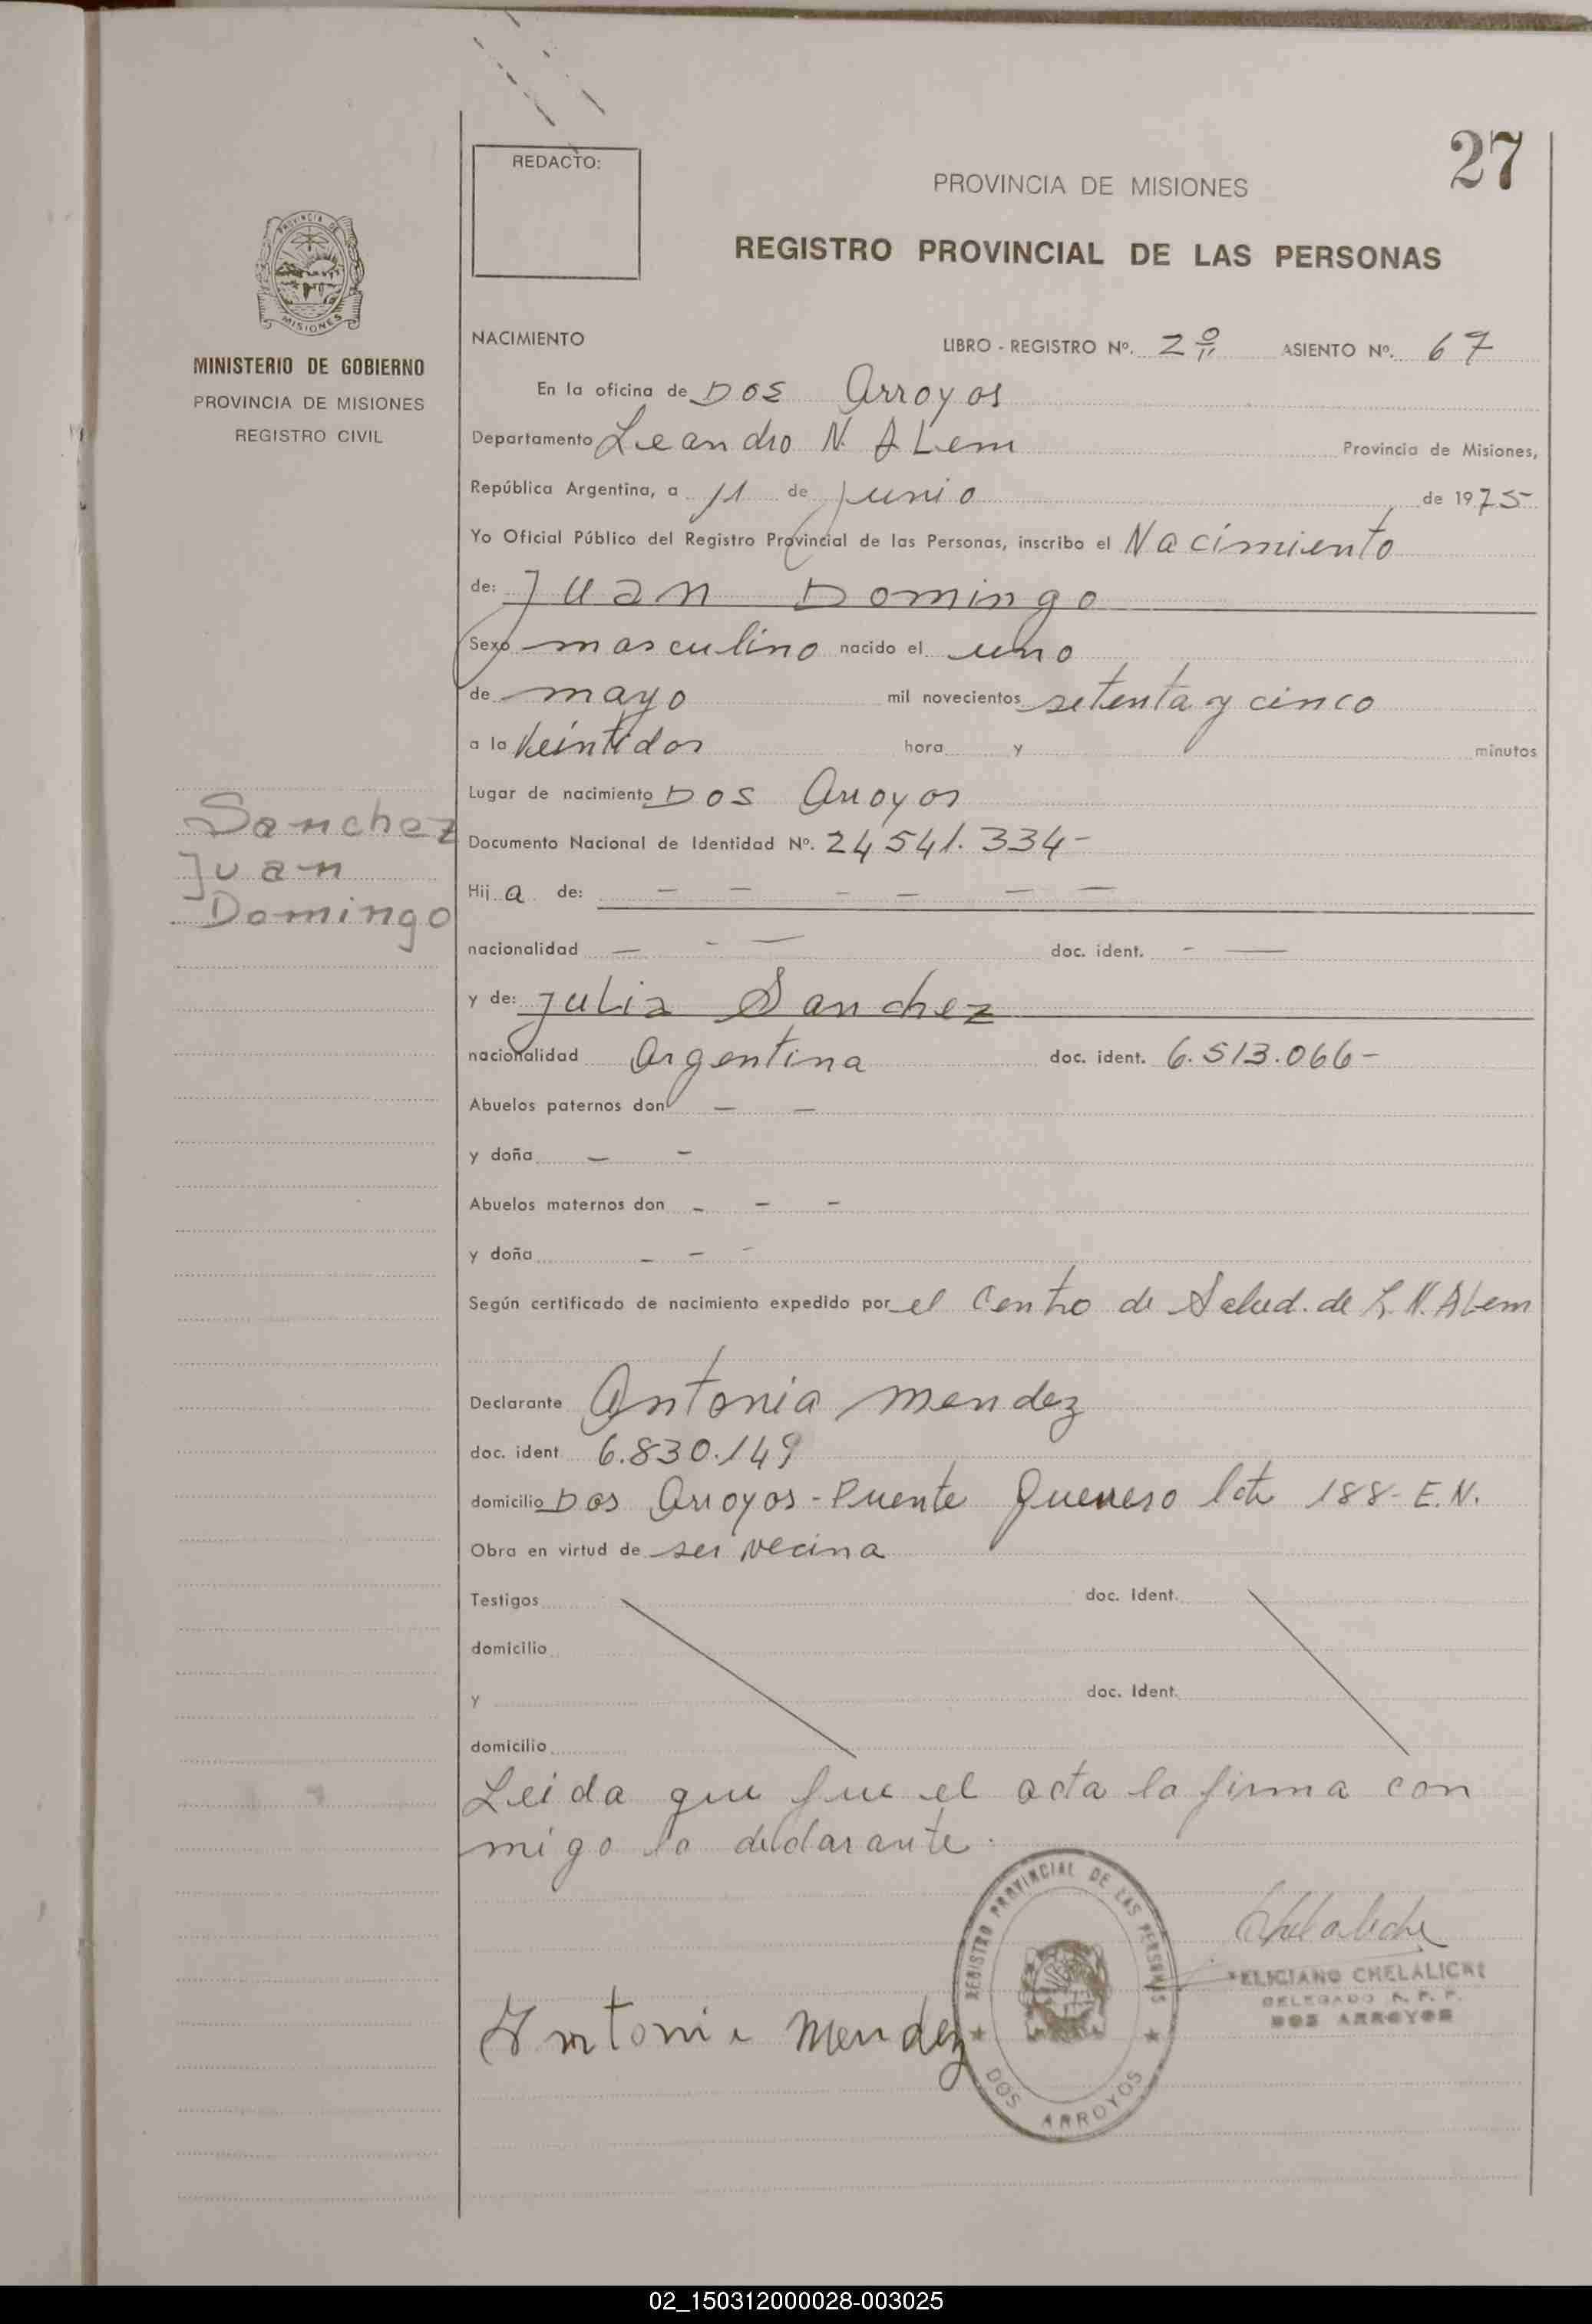 27
REDACTO:
PROVINCIA DE MISIONES
REGISTRO PROVINCIAL DE LAS PERSONAS
PROVINCIA DE
MISIONES
MINISTERIO DE GOBIERNO
PROVINCIA DE MISIONES
REGISTRO CIVIL
NACIMIENTO LIBRO - REGISTRO Nº. 2º ASIENTO Nº. 67
En la oficina de Dos Arroyos
Departamento Leandro N. ALem Provincia de Misiones,
República Argentina, a 11 de Junio de 1975
Yo Oficial Público del Registro Provincial de las Personas, inscribo el Nacimiento
de: Juan Domingo
Sexo masculino nacido el uno
de mayo mil novecientos setenta y cinco
a la Veintidos hora y minutos
Lugar de nacimiento Dos Arroyos
Sanchez
Juan
Domingo
Documento Nacional de Identidad Nº. 24.541.334-
Hij a de: - - - - - -
nacionalidad - - - doc. ident. - -
y de: Julia Sanchez
nacionalidad Argentina doc. ident. 6.513.066-
Abuelos paternos don - -
y doña - -
Abuelos maternos don - - -
y doña - - -
Según certificado de nacimiento expedido por el Centro de Salud. de L. N. ALem
Declarante Antonia Mendez
doc. ident 6.830.149
domicilio Dos Arroyos - Puente Queneso lote 188- E.N.
Obra en virtud de ser vecina
Testigos doc. Ident.
domicilio
y doc. Ident.
domicilio
Leida que fue el acta la firma con
migo la declarante.
REGISTRO PROVINCIAL DE LAS PERSONAS
DOS ARROYOS
FELICIANO CHELALICHE
DELEGADO R. P. P.
DOS ARROYOS
Antonia Mendez
02_150312000028-003025